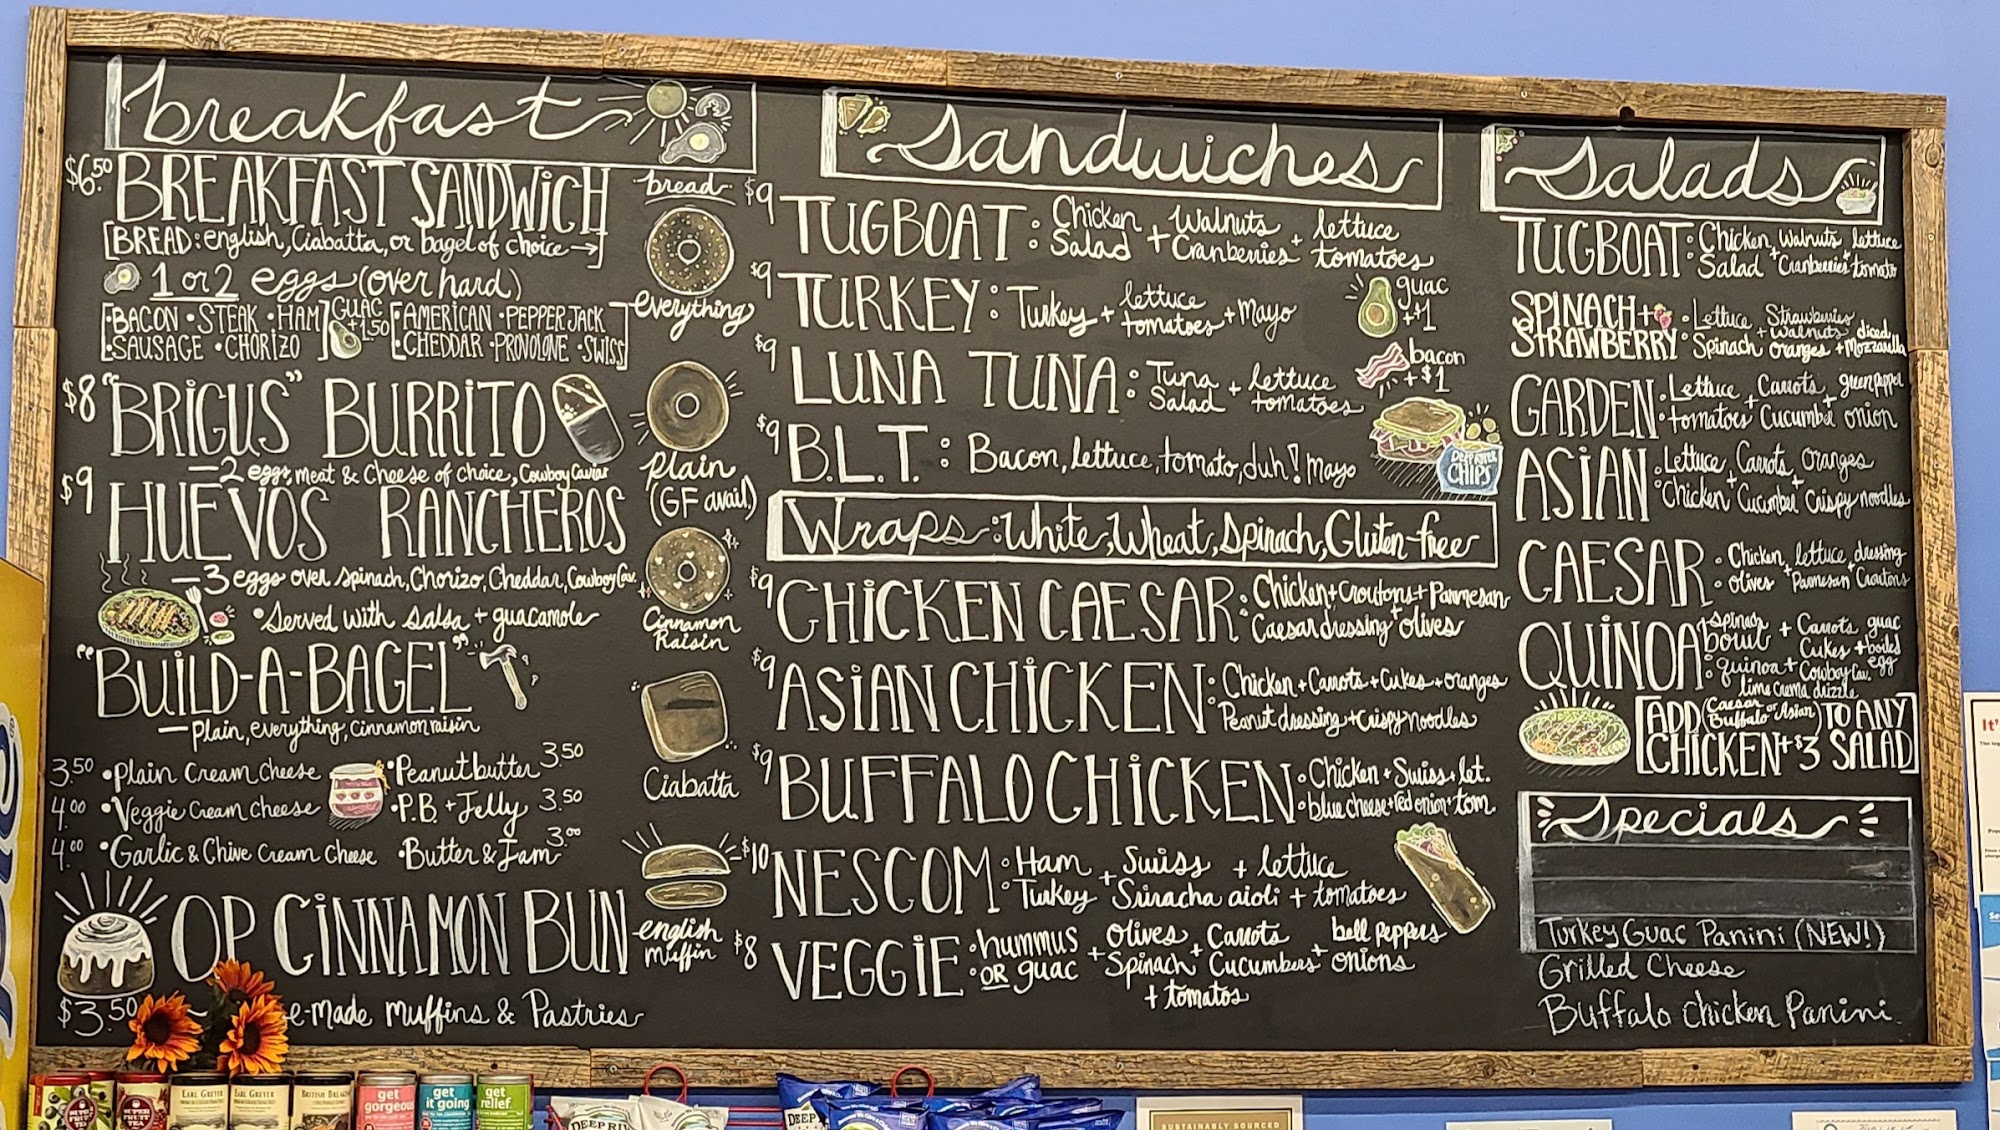 breakfast
$6.50 BREAKFAST SANDWICH
[BREAD: english, Ciabatta, or bagel of choice →]
1 or 2 eggs (over hard)
[•BACON •STEAK •HAM
•SAUSAGE •CHORIZO]
GUAC
+1.50
[•AMERICAN •PEPPER JACK
•CHEDDAR •PROVOLONE •SWISS]
$8 "BRIGUS" BURRITO
—2 eggs, meat & Cheese of choice, Cowboy Caviar
$9 HUEVOS RANCHEROS
—3 eggs over spinach, Chorizo, Cheddar, Cowboy Cav.
•Served with salsa + guacamole
"BUILD-A-BAGEL"
—Plain, everything, Cinnamon raisin
3.50 •Plain Cream Cheese
4.00 •Veggie Cream Cheese
4.00 •Garlic & Chive Cream Cheese
•Peanut butter 3.50
•P.B. + Jelly 3.50
•Butter & Jam 3.00
OP CINNAMON BUN
$3.50
e-Made Muffins & Pastries
bread
everything
Plain
(GF avail.)
Cinnamon
Raisin
Ciabatta
english
muffin
Sandwiches
$9 TUGBOAT: Chicken Salad + Walnuts Cranberries + lettuce tomatoes
$9 TURKEY: Turkey + lettuce tomatoes + Mayo
guac
+$1
$9 LUNA TUNA: Tuna Salad + lettuce tomatoes
bacon
+$1
$9 B.L.T.: Bacon, lettuce, tomato, duh! mayo
DEEP RIVER
CHIPS
Wraps: White, Wheat, Spinach, Gluten-free
$9 CHICKEN CAESAR: Chicken + Croutons + Parmesan
Caesar dressing + olives
$9 ASIAN CHICKEN: Chicken + Carrots + Cukes + oranges
Peanut dressing + Crispy noodles
$9 BUFFALO CHICKEN •Chicken + Swiss + let.
•blue cheese + red onion + tom.
$10 NESCOM •Ham
•Turkey + Swiss Sriracha aioli + lettuce + tomatoes
$8 VEGGIE •hummus
•OR guac + Olives Spinach + Carrots Cucumbers + bell peppers onions
+ tomatos
Salads
TUGBOAT: Chicken Salad + Walnuts Cranberries + lettuce tomato
SPINACH +
STRAWBERRY •Lettuce •Spinach + Strawberries walnuts oranges + diced Mozzarella
GARDEN •Lettuce •tomatoes + Carrots Cucumber + green pepper onion
ASIAN •Lettuce •Chicken + Carrots Cucumber + Oranges Crispy noodles
CAESAR •Chicken •olives + lettuce Parmesan + dressing Croutons
QUINOA •spinach bowl •quinoa + Carrots Cukes + Cowboy Cav. guac + boiled egg
lime crema drizzle
[ADD (Caesar Buffalo or Asian) TO ANY
CHICKEN +$3 SALAD]
Specials
Turkey Guac Panini (NEW!)
Grilled Cheese
Buffalo Chicken Panini
It's
SUPER
FRUIT
TEA
EARL GREYER
EARL GREYER
BRITISH BREAK
get
gorgeous
get
it going
get
relief
DEEP RIV
DEEP
SUSTAINABLY SOURCED